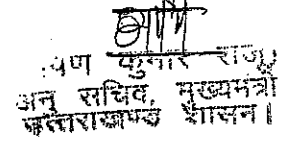 :पण कुमार राजू)
अनु सचिव, मुख्यमंत्री
उत्तराखण्ड शासन।